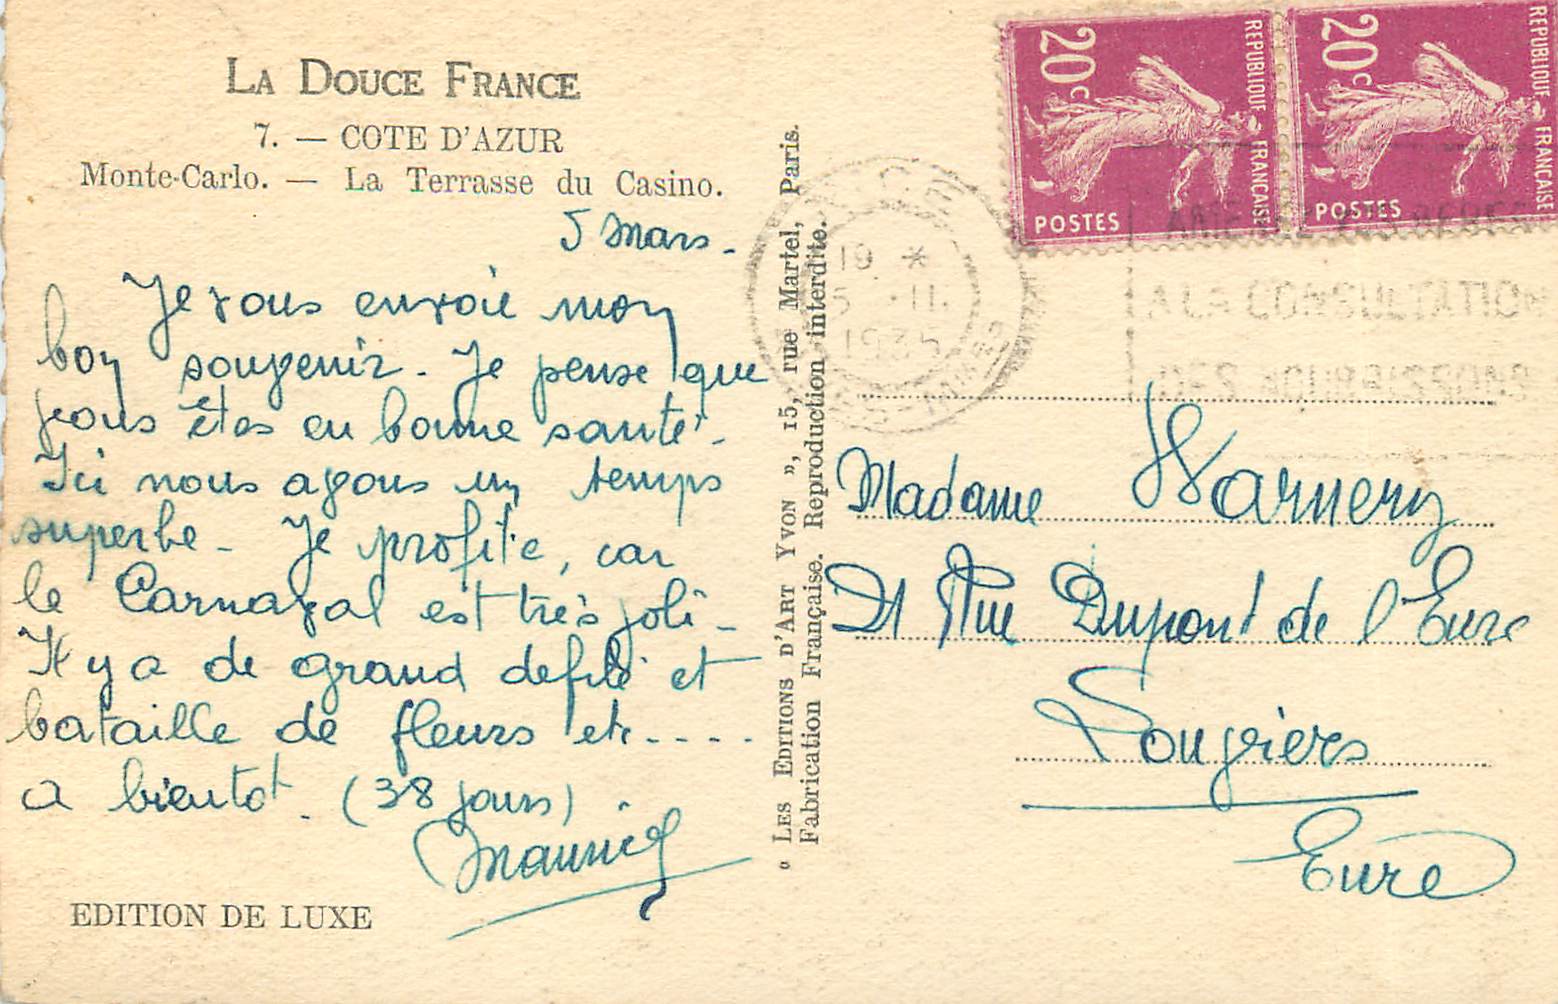 LA DOUCE FRANCE
7. — COTE D'AZUR
Monte-Carlo. — La Terrasse du Casino.
5 Mars -
Je vous envoie mon
bon souvenir. Je pense que
vous êtes en bonne santé.
Ici nous avons un temps
superbe - Je profite, car
le Carnaval est très joli -
Il y a de grand defilé et
bataille de fleurs etc ----
a bientot. (38 jours)
Maurice
EDITION DE LUXE
« LES EDITIONS D'ART YVON », 15, rue Martel, Paris.
Fabrication Française. Reproduction interdite.
20c
REPUBLIQUE FRANÇAISE
POSTES
20c
REPUBLIQUE FRANÇAISE
POSTES
19 *
5 · II.
1935
A LA CONSULTATION
DES NOURRISSONS
Madame Warnery
21 Rue Dupont de l'Eure
Louviers
Eure